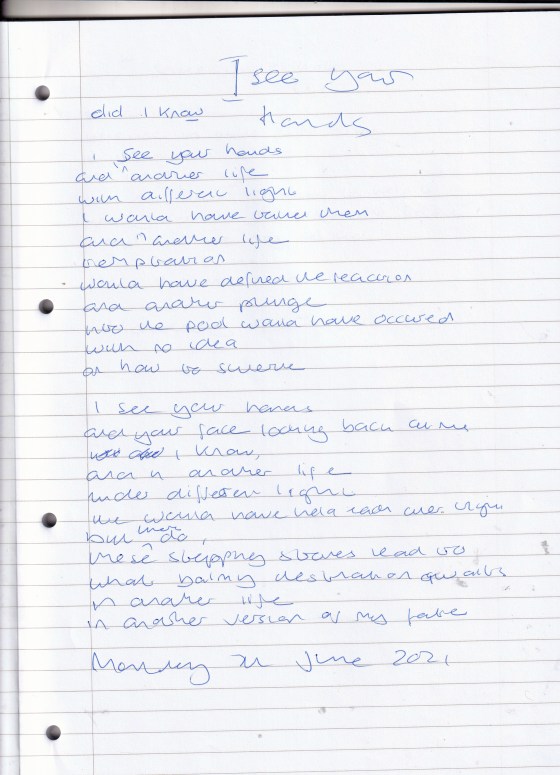 I see your
hands
did I know
I see your hands
and in another life
with different light
I would have taken them
and in another life
temptation
would have defined the reaction
and another plunge
into the pool would have occured
with no idea
of how to swerve
I see your hands
and your face looking back at me
did I know,
and in another life
under different light
we would have held each other tight
but then do,
these stepping stones lead to
what balmy destination awaits
in another life
in another version of my fate
Monday 21 June 2021